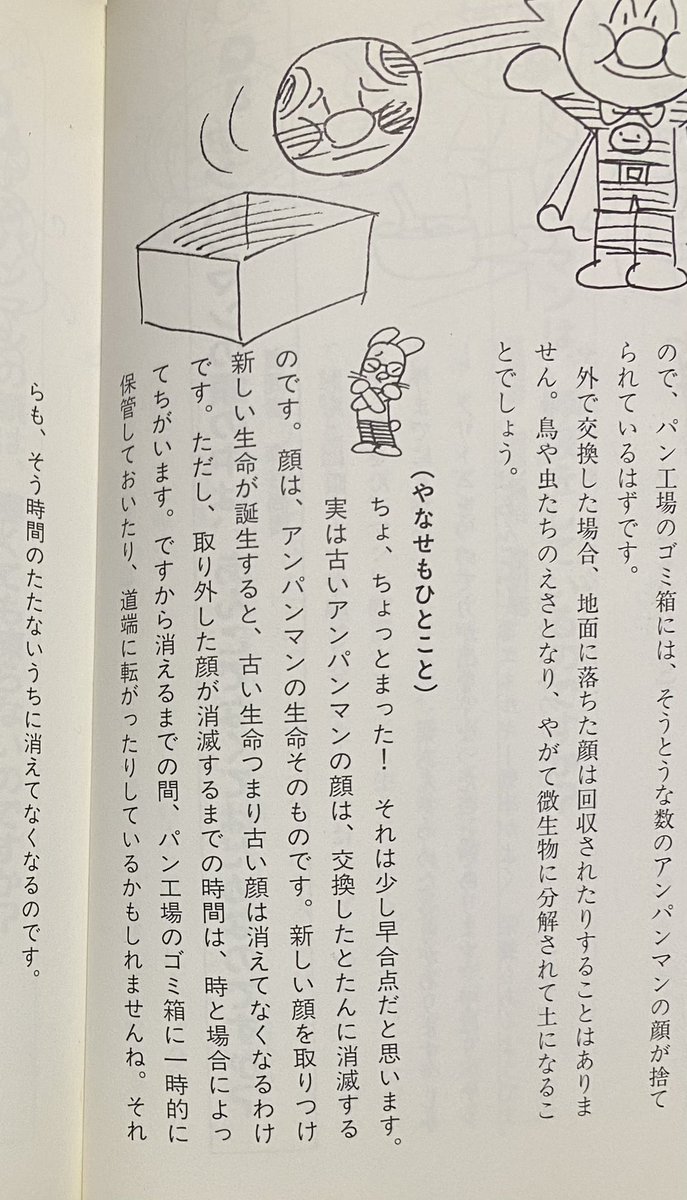 ので、パン工場のゴミ箱には、そうとうな数のアンパンマンの顔が捨て
られているはずです。
外で交換した場合、地面に落ちた顔は回収されたりすることはありま
せん。鳥や虫たちのえさとなり、やがて微生物に分解されて土になるこ
とでしょう。
(やなせもひとこと)
ちょ、ちょっとまった！　それは少し早合点だと思います。
実は古いアンパンマンの顔は、交換したとたんに消滅する
のです。顔は、アンパンマンの生命そのものです。新しい顔を取りつけ
新しい生命が誕生すると、古い生命つまり古い顔は消えてなくなるわけ
です。ただし、取り外した顔が消滅するまでの時間は、時と場合によっ
てちがいます。ですから消えるまでの間、パン工場のゴミ箱に一時的に
保管しておいたり、道端に転がったりしているかもしれませんね。それ
らも、そう時間のたたないうちに消えてなくなるのです。